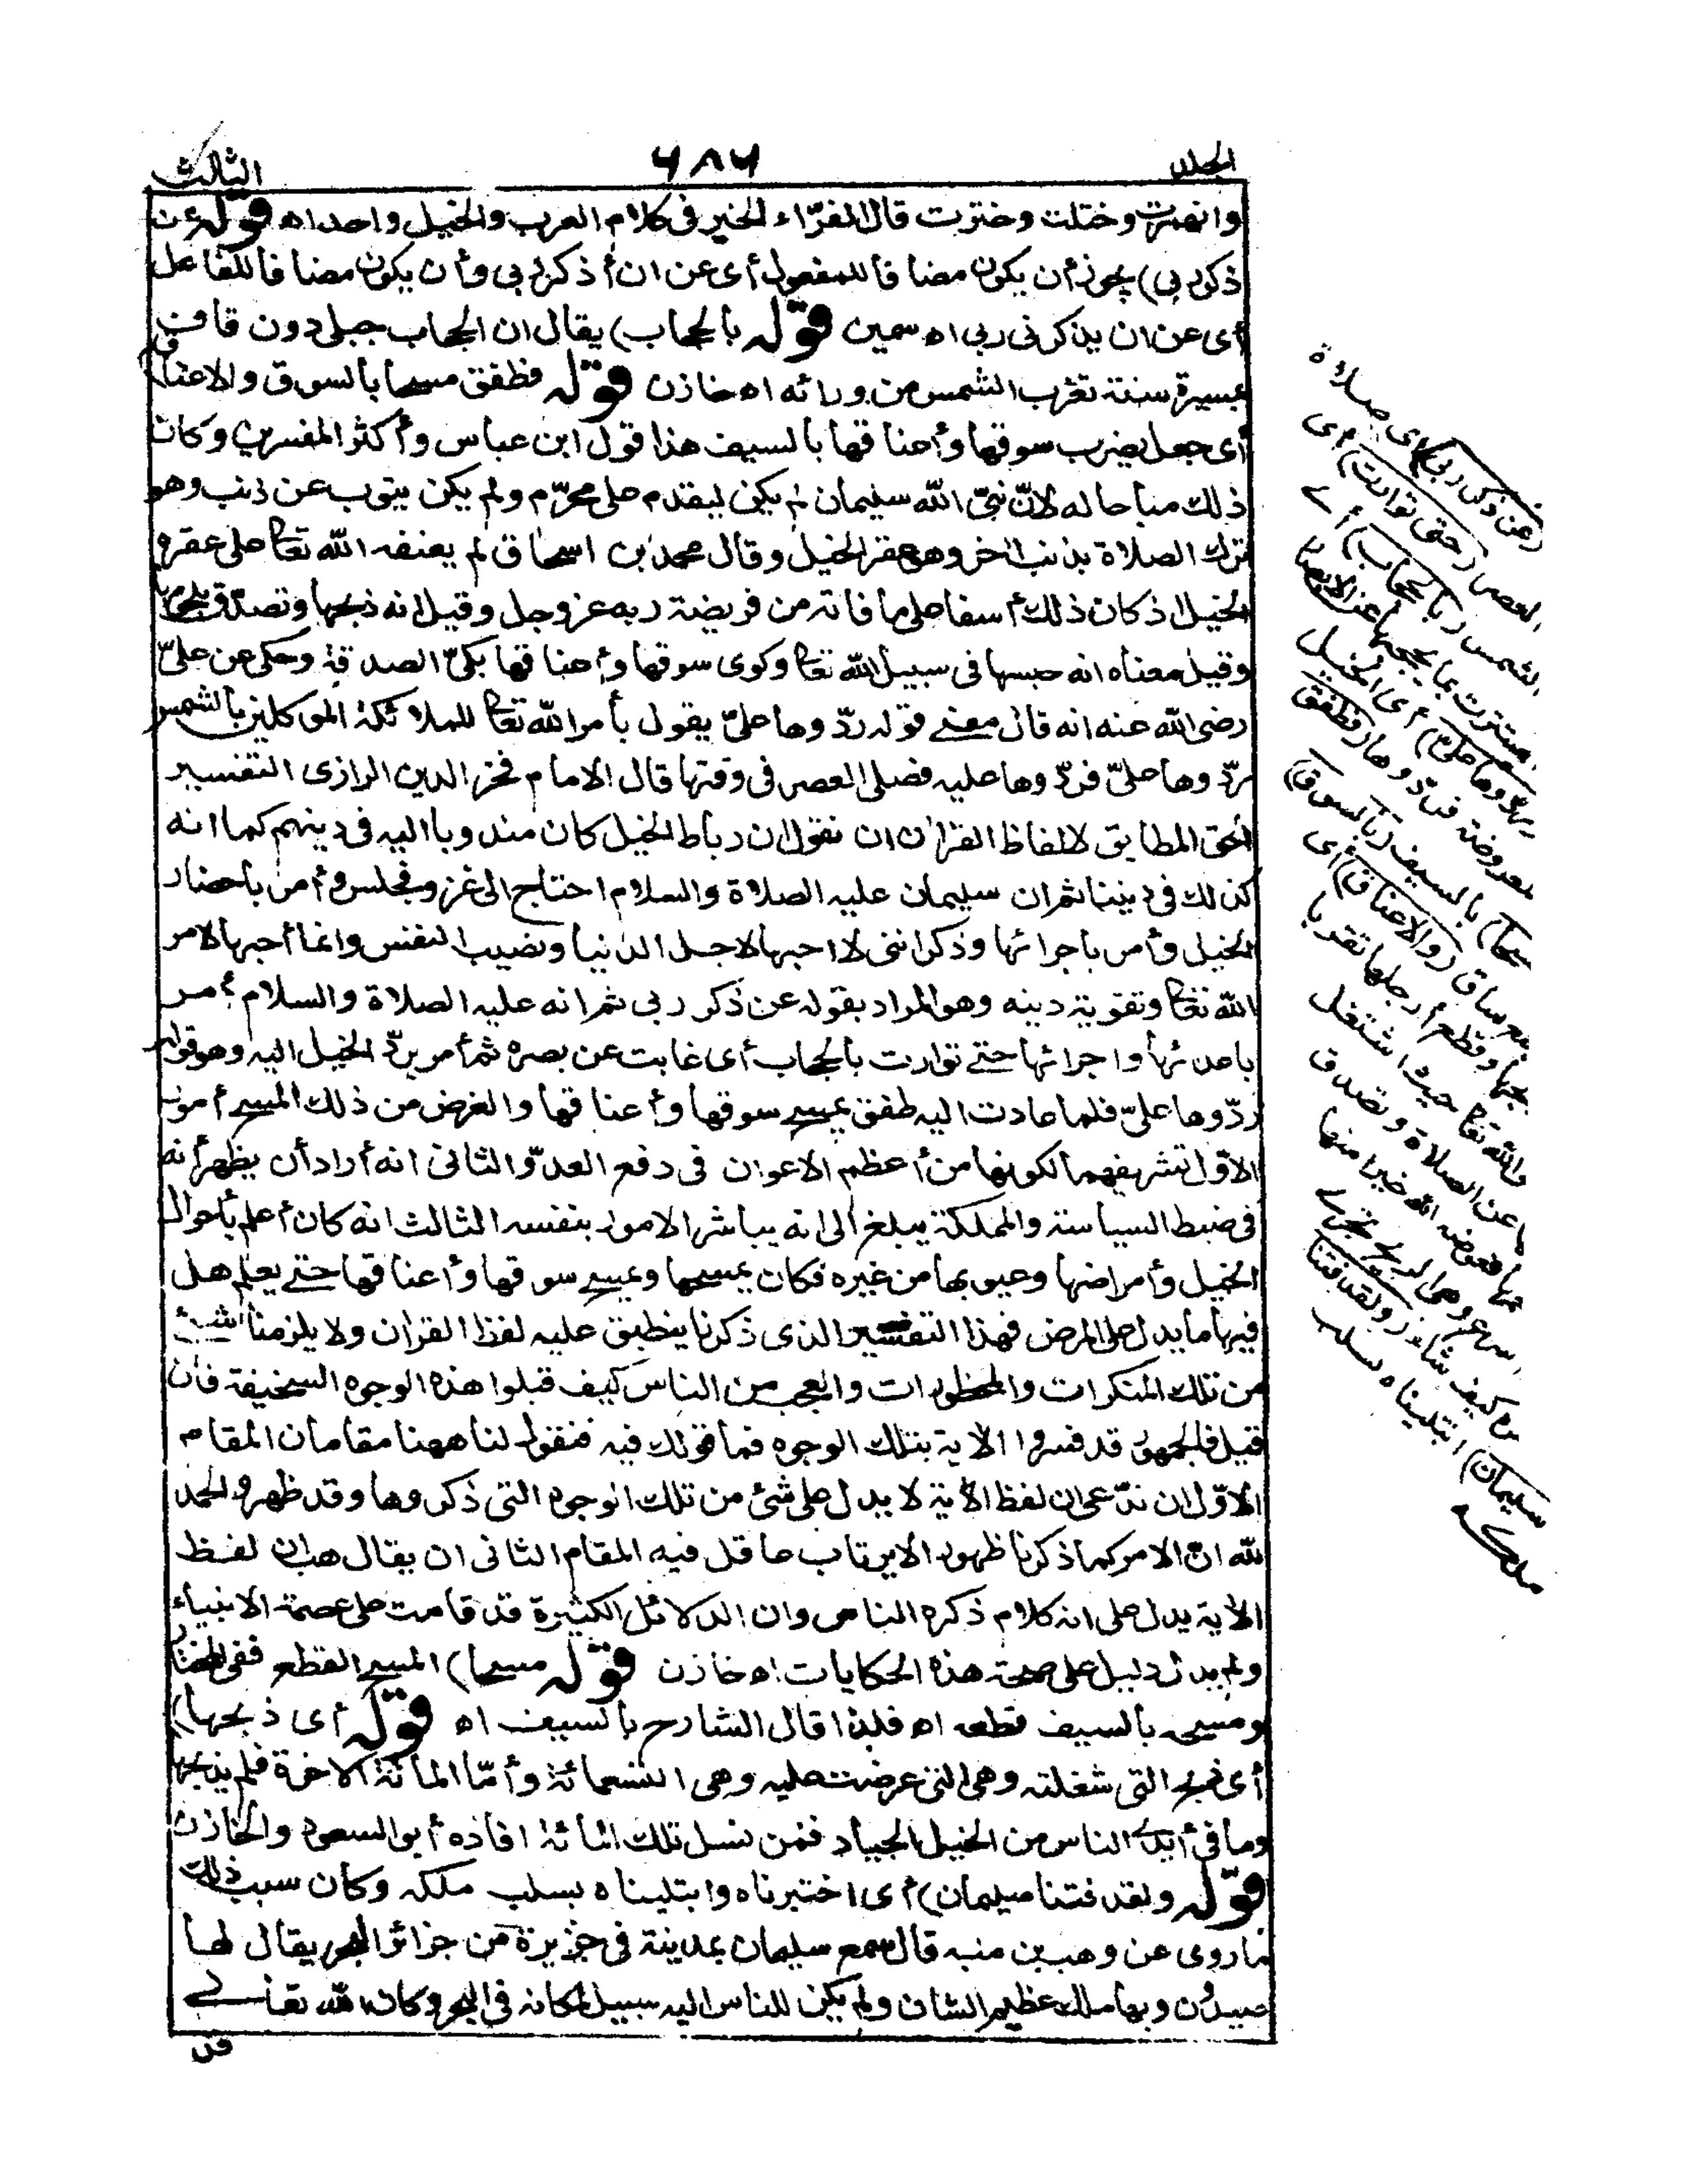 الجلد
٦٨٦
الثالث
وانهمرت وختلت وخترت قال الفرّاء الخير فى كلام العرب والخيل واحد اه قوله عن
ذكر ربى) يجوز أن يكون مضافا للمفعول أى عن ان أذكر ربى وأن يكون مضافا للفاعل
أى عن ان يذكرنى ربى اه سمين قوله بالحجاب) يقال ان الحجاب جبل دون قاف
بمسيرة سنة تغرب الشمس من ورائه اه خازن قوله فطفق مسحا بالسوق والاعناق)
أى جعل يضرب سوقها وأعناقها بالسيف هذا قول ابن عباس وأكثر المفسرين وكان
ذلك مباحا له لانّ نبىّ الله سليمان لم يكن ليقدم على محرّم ولم يكن يتوب عن ذنب وهو
ترك الصلاة بذنب اخر وهو عقر الخيل وقال محمد بن اسحاق لم يعنفه الله تعالى على عقره
الخيل اذ كان ذلك أسفا على ما فاته من فريضة ربه عز وجل وقيل انه ذبحها وتصدّق بلحمها
وقيل معناه انه حبسها فى سبيل الله تعالى وكوى سوقها وأعناقها بكىّ الصدقة وحكى عن علىّ
رضى الله عنه انه قال معنى قوله ردّوها علىّ يقول بأمر الله تعالى للملائكة الموكلين بالشمس
ردّوها علىّ فردّوها عليه فصلى العصر فى وقتها قال الامام فخر الدين الرازى التفسير
الحق المطابق لالفاظ القران ان نقول ان رباط الخيل كان مندوبا اليه فى دينهم كما انه
كذلك فى ديننا ثم ان سليمان عليه الصلاة والسلام احتاج الى غزو فجلس وأمر باحضار
الخيل وأمر باجرائها وذكر اننى لا احبها لاجل الدنيا ونصيب النفس وانما أحبها لامر
الله تعالى وتقوية دينه وهو المراد بقوله عن ذكر ربى ثم انه عليه الصلاة والسلام أمر
باعدائها واجرائها حتى توارت بالحجاب أى غابت عن بصره ثم أمر بردّ الخيل اليه وهو قوله
ردّوها علىّ فلما عادت اليه طفق يمسح سوقها وأعناقها والغرض من ذلك المسح أمور
الاوّل تشريفهما لكونها من أعظم الاعوان فى دفع العدوّ والثانى انه أراد أن يظهر أنه
فى ضبط السياسة والمملكة يبلغ الى انه يباشر الامور بنفسه الثالث انه كان أعلم بأحوال
الخيل وأمراضها وعيوبها من غيره فكان يمسحها ويمسح سوقها وأعناقها حتى يعلم هل
فيها ما يدل على المرض فهذا التفسير الذى ذكرنا ينطبق عليه لفظ القران ولا يلزمنا شئ
من تلك المنكرات والمحظورات والعجب من الناس كيف قبلوا هذه الوجوه السخيفة فان
قيل فالجمهور قد فسروا الاية بتلك الوجوه فما قولك فيه فنقول لنا ههنا مقامان المقام
الاوّل ان ندّعى ان لفظ الاية لا يدل على شئ من تلك الوجوه التى ذكروها وقد ظهر والحمد
لله ان الامر كما ذكرنا ظهورا لا يرتاب عاقل فيه المقام الثانى ان يقال هب ان لفظ
الاية يدل على انه كلام ذكره الناس وان الدلائل الكثيرة قد قامت على عصمة الانبياء
ولم يدل دليل على صحة هذه الحكايات اه خازن قوله مسحا) المسح القطع ففى المختار
ومسحه بالسيف قطعه اه فلذا قال الشارح بالسيف اه قوله أى ذبحها)
أى ذبح التى شغلته وهى التى عرضت عليه وهى التسعمائة وأمّا المائة الاخرة فلم يذبحها
وما فى أيدى الناس من الخيل الجياد فمن نسل تلك المائة افاده أبو السعود والخازن
قوله ولقد فتنا سليمان) أى اختبرناه وابتليناه بسلب ملكه وكان سبب ذلك
ما روى عن وهب بن منبه قال سمع سليمان بمدينة فى جزيرة من جزائر البحر يقال لها
صيدون وبها ملك عظيم الشان ولم يكن للناس اليه سبيل لمكانه فى البحر وكان الله تعالى
قد
(عن ذكر ربى) أى صلاة
العصر (حتى توارت) أى
الشمس (بالحجاب) أى
استترت بما يحجبها عن الابصار
(ردّوها علىّ) أى الخيل
المعروضة فردّوها (فطفق
مسحا) بالسيف (بالسوق)
جمع ساق (والاعناق) أى
ذبحها وقطع أرجلها تقربا
الى الله تعالى حيث اشتغل
بها عن الصلاة وتصدق
بلحمها فعوضه الله خيرا منها
وأسرع وهى الريح تجرى
بأمره كيف شاء (ولقد فتنا
سليمان) ابتليناه بسلب
ملكه